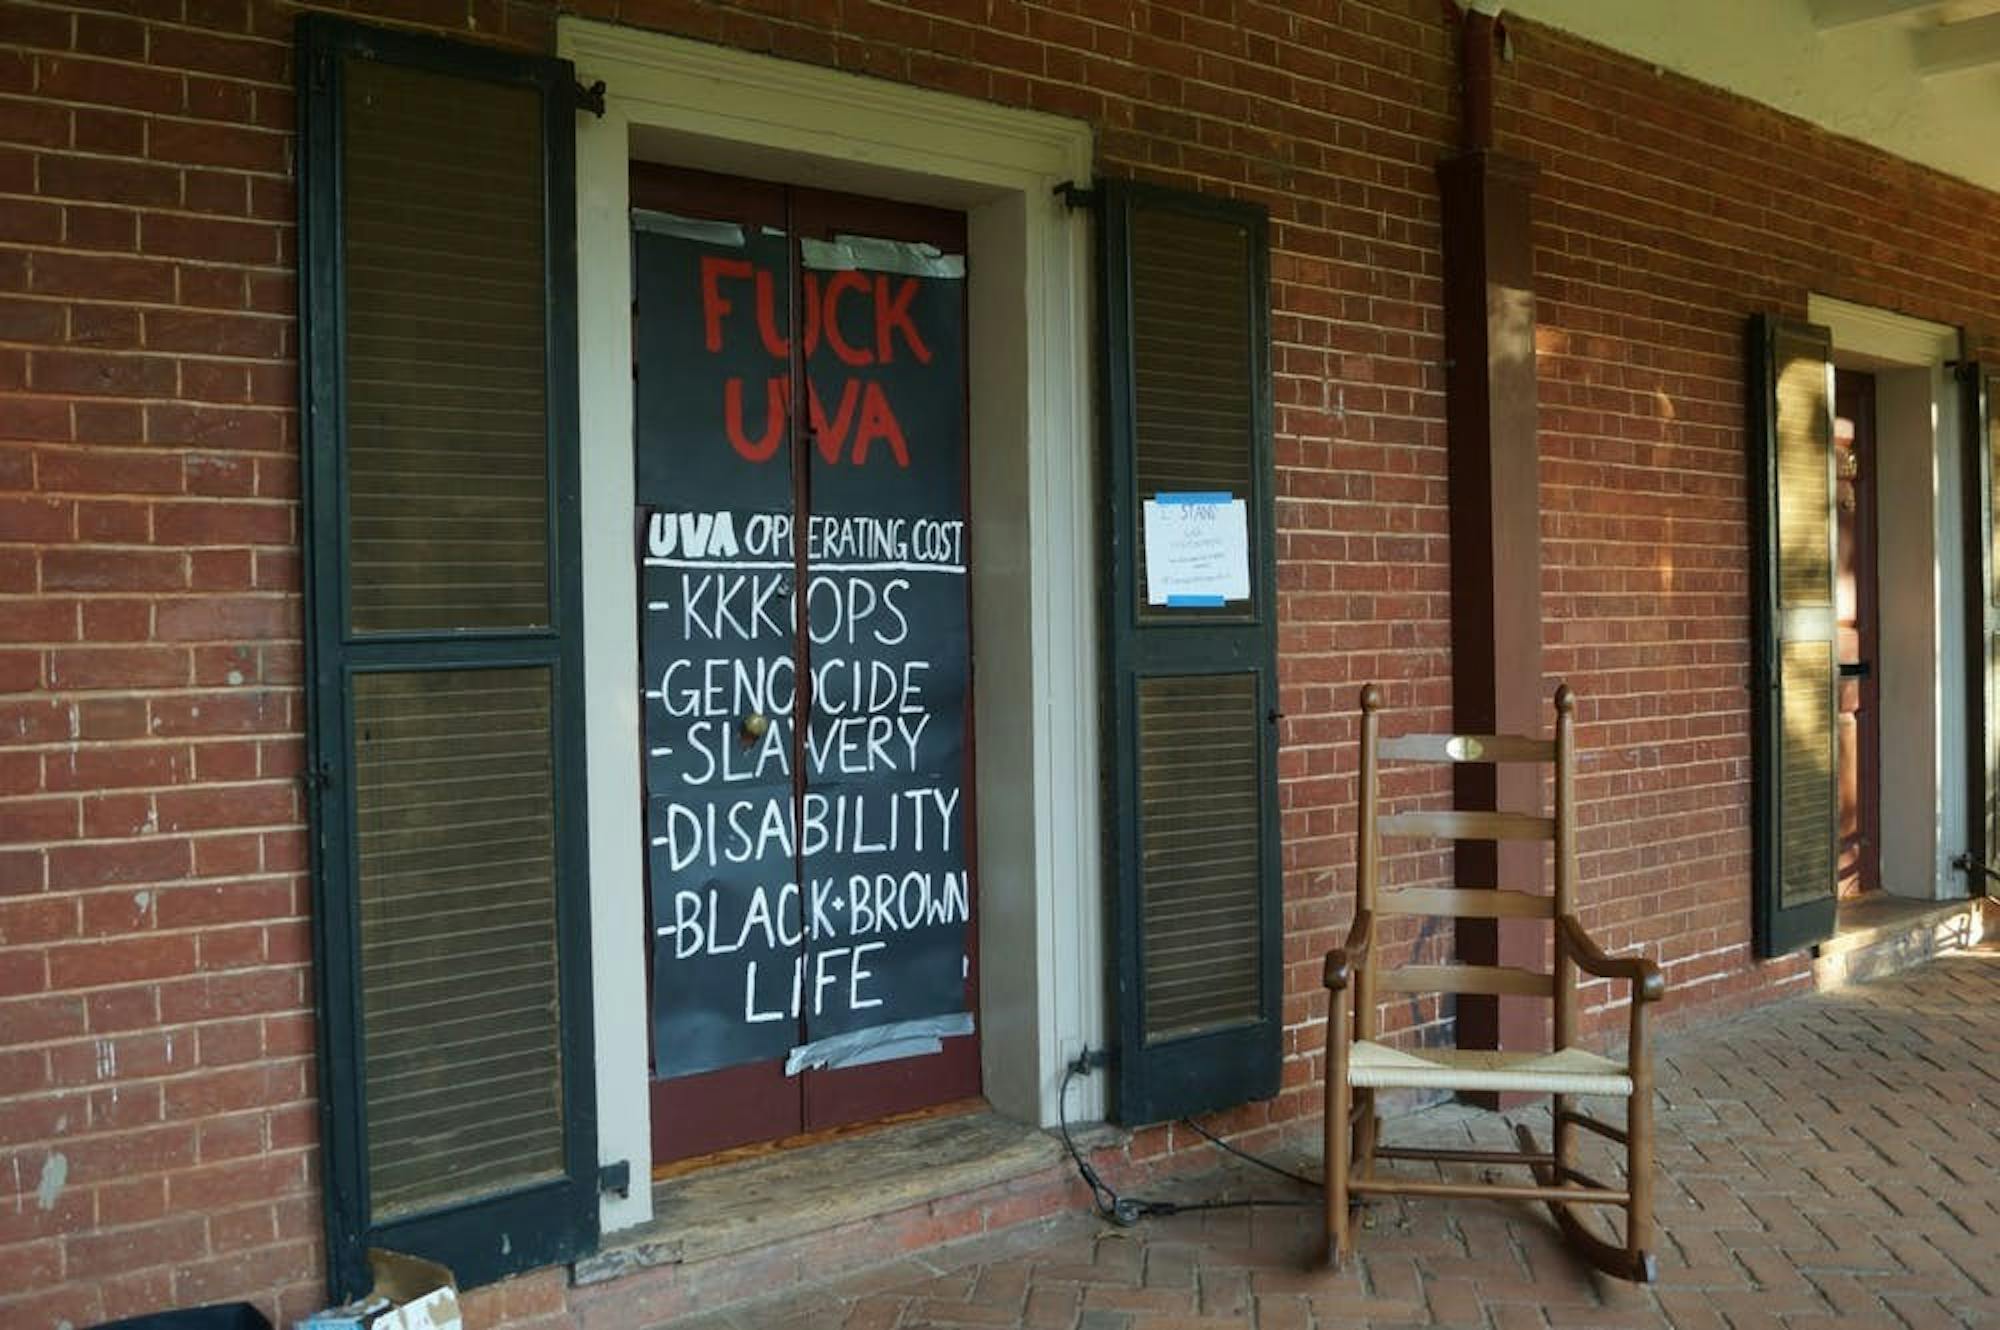 FUCK
UVA
UVA OPERATING COST
-KKKOPS
-GENOCIDE
-SLAVERY
-DISABILITY
-BLACK+BROWN
LIFE
I STAND